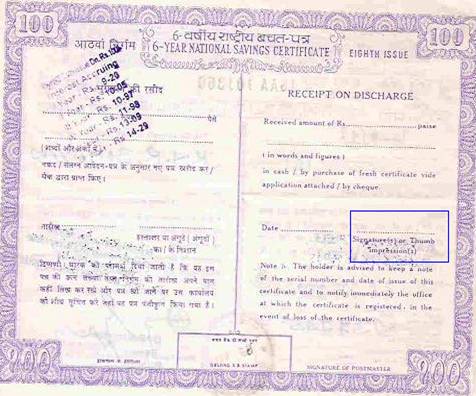 100
100
6-वर्षीय राष्ट्रीय बचत-पत्र
आठवां निर्गम
6-YEAR NATIONAL SAVINGS CERTIFICATE
EIGHTH ISSUE
Accruing
की रसीद
RECEIPT ON DISCHARGE
10-97
11-98
13-09
Rs. 14-29
पैसे
Received amount of Rs. paise
(शब्दों और अंकों में)
(in words and figures)
नकद / संलग्न आवेदन-पत्र के अनुसार नए पत्र खरीद कर /
चैक द्वारा प्राप्त किए।
in cash / by purchase of fresh certificate vide
application attached / by cheque.
तारीख
Date
हस्ताक्षर या अंगूठे (अंगूठों)
का / के निशान
Signature(s) or Thumb
impression(s)
टिप्पणी: धारक को परामर्श दिया जाता है कि वह इस
पत्र की क्रम संख्या तथा निर्गम की तारीख अपने पास
कहीं लिख कर रखे और पत्र खो जाने पर उस कार्यालय
को शीघ्र सूचित करे जहाँ यह पत्र पंजीकृत किया गया है।
Note :- The holder is advised to keep a note
of the serial number and date of issue of this
certificate and to notify immediately the office
at which the certificate is registered, in
the event of loss of the certificate.
100
100
SIGNATURE OF POSTMASTER